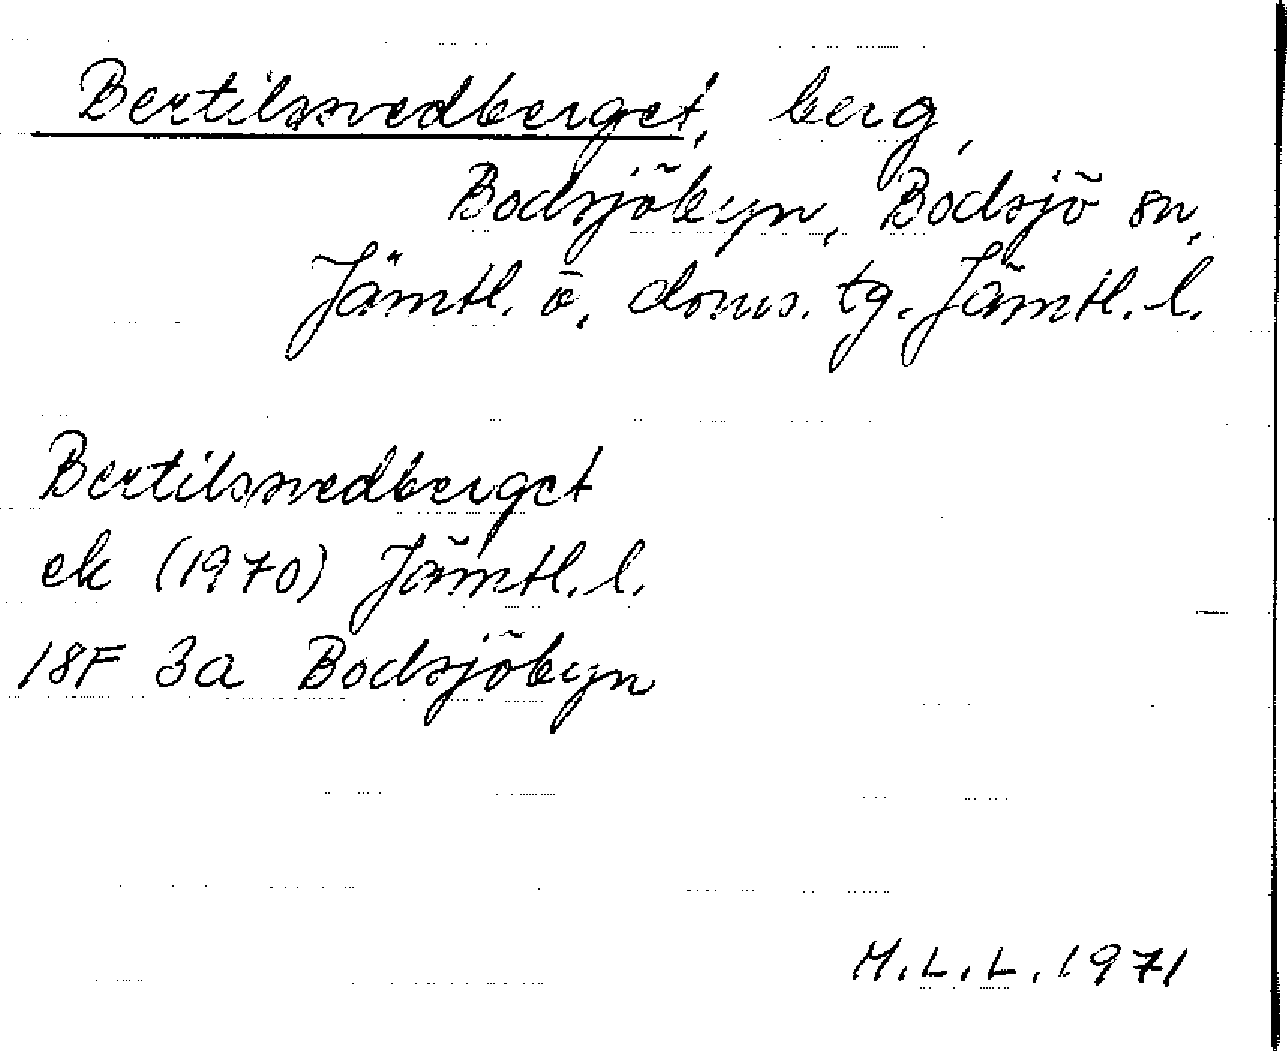 Bertilssvedberget, berg,
Bodsjöbyn, Bodsjö sn,
Jämtl. ö. doms. tg. Jämtl. l.
Bertilssvedberget
ek (1970) Jämtl. l.
18F 3a Bodsjöbyn
M.L.L. 1971